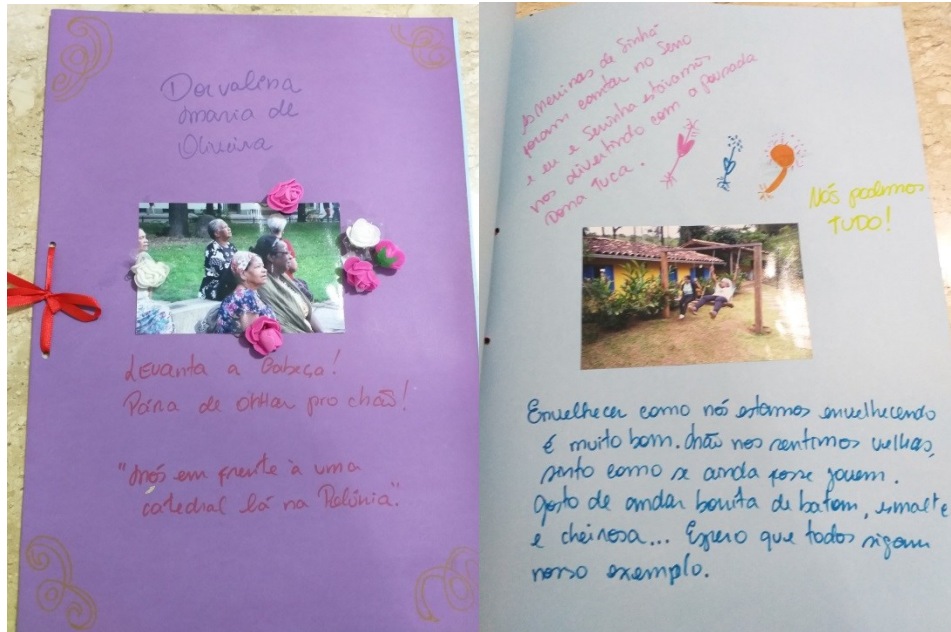 Dorvalina
Maria de
Oliveira
Levanta a Cabeça!
Pára de olhar pro chão!
"Nós em frente à uma
catedral lá na Polônia".
As meninas de Sinhá
foram cantar no Serro
e eu e Servinha estávamos
nos divertindo com a pousada
Dona Tuca.
Nós podemos
TUDO!
Envelhecer como nós estamos envelhecendo
é muito bom. Não nos sentimos velhas,
sinto como se ainda fosse jovem.
Gosto de andar bonita de batom, esmalte
e cheirosa... Espero que todos sigam
nosso exemplo.